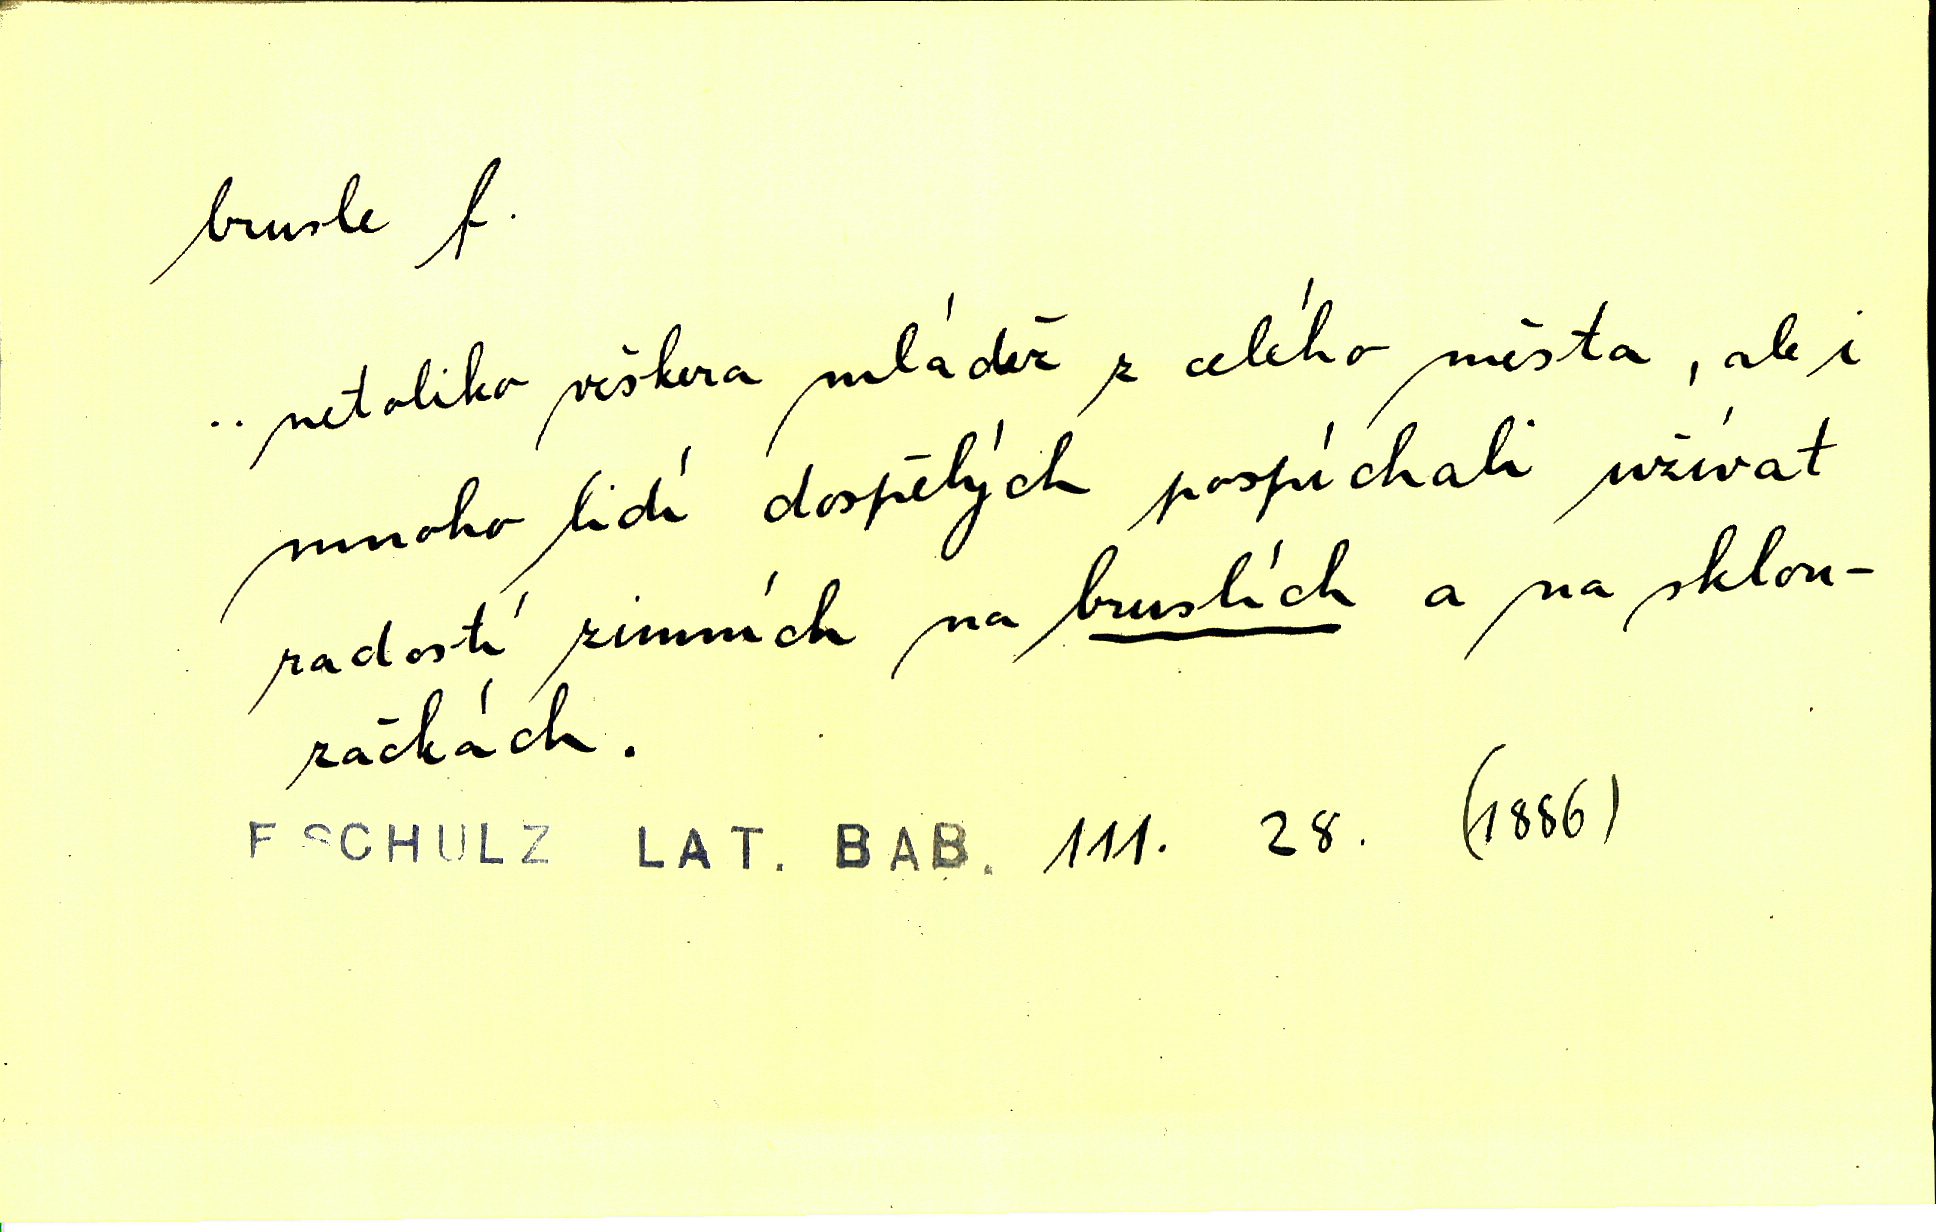 brusle f.
.. netoliko veškera mládež z celého města, ale i
mnoho lidí dospělých pospíchali užívat
radostí zimních na bruslích a na sklou-
začkách.
F SCHULZ LAT. BAB. 111. 28. (1886)